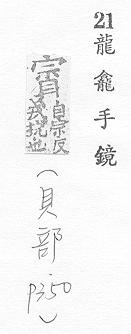 21 龍龕手鏡
自宗反
戎挩也
(貝部 P350)